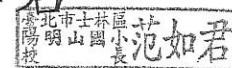 臺北市士林區
陽明山國小
校長
范如君